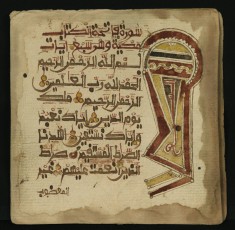 سورة فاتحة الكتاب
مكية وهي سبع آيات
بسم الله الرحمن الرحيم
الحمد لله رب العلمين
الرحمن الرحيم ملك
يوم الدين إياك نعبد
وإياك نستعين اهدنا
الصراط المستقيم صراط
الذين أنعمت عليهم غير
المغضوب